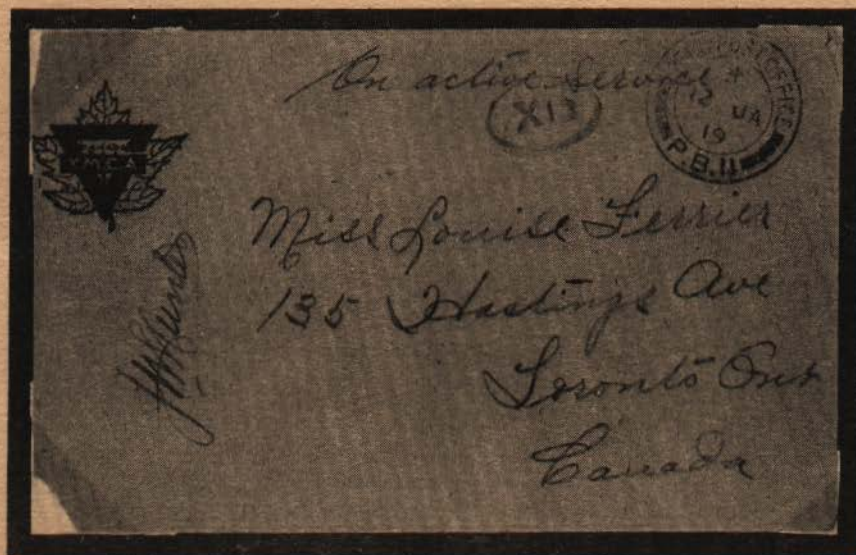 On active Service
X13
POST OFFICE
12 JA
19
P.B.11
Y.M.C.A.
Miss Louise Ferrier
135 Hastings Ave
Toronto Ont
Canada